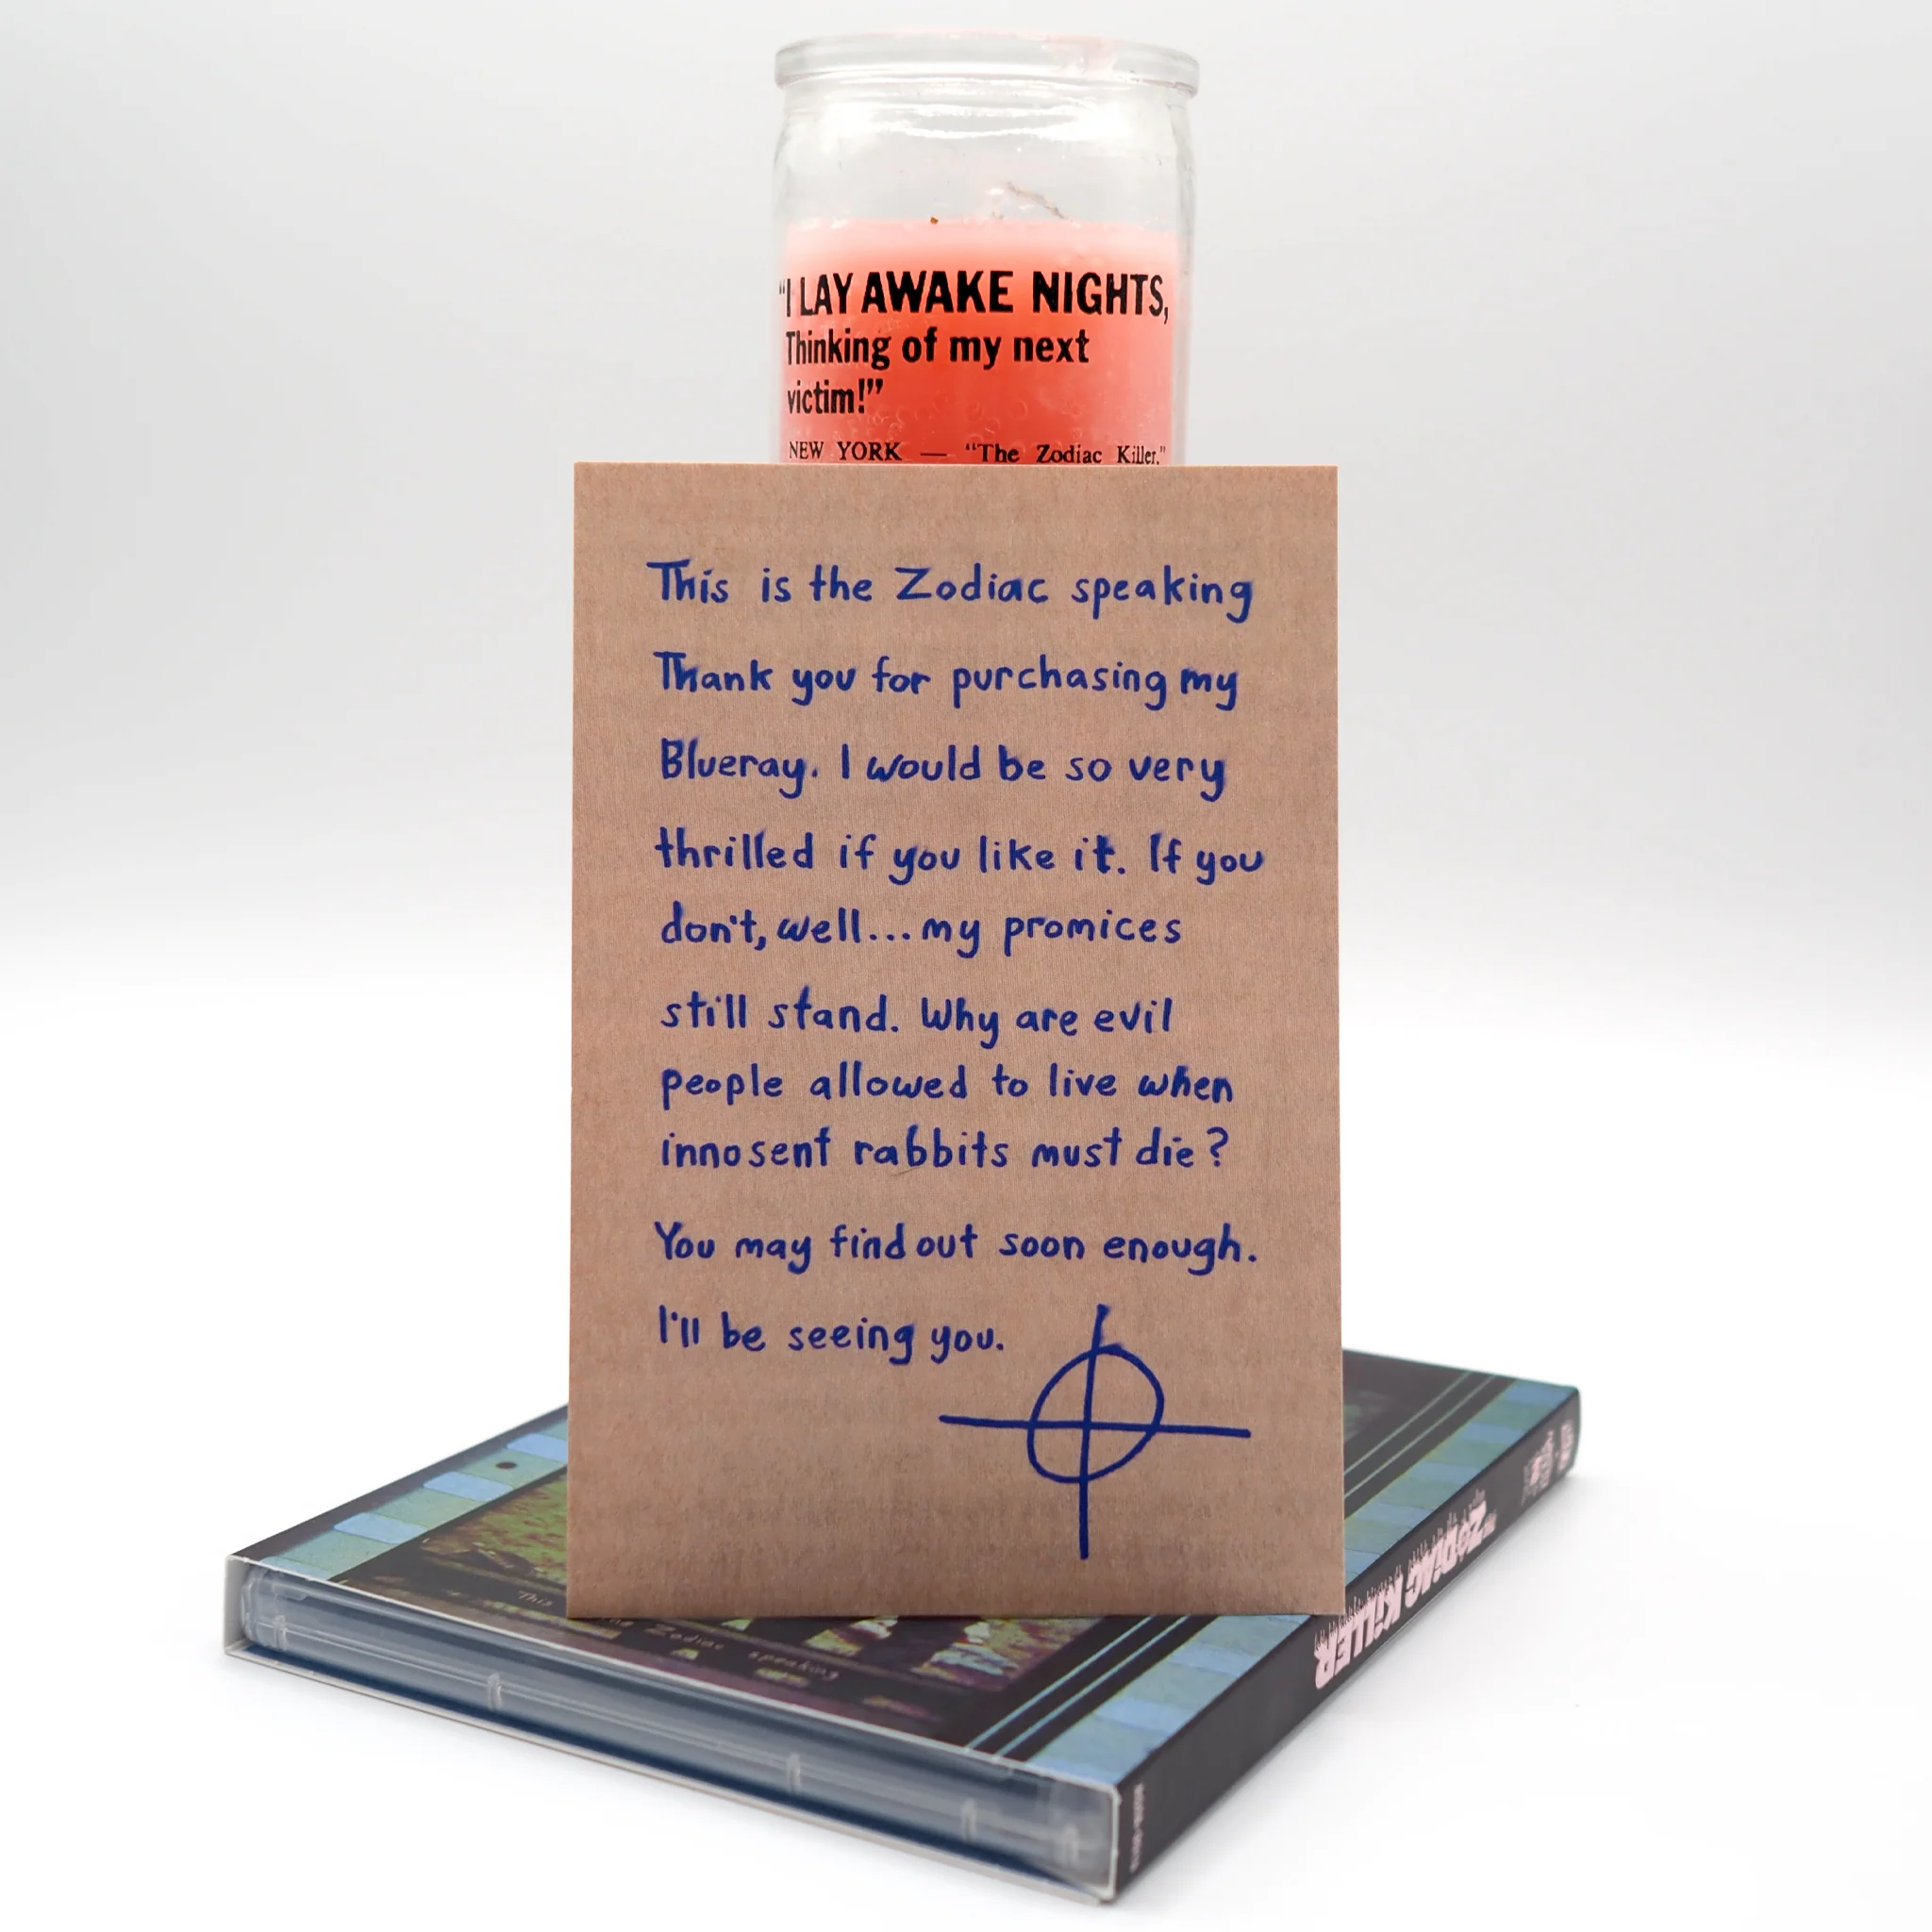 "I LAY AWAKE NIGHTS,
Thinking of my next
victim!"
NEW YORK — "The Zodiac Killer,"
This is the Zodiac speaking
Thank you for purchasing my
Blueray. I would be so very
thrilled if you like it. If you
don't, well...my promices
still stand. Why are evil
people allowed to live when
innosent rabbits must die?
You may find out soon enough.
I'll be seeing you.
This Zodiac speaking
THE ZODIAC KILLER